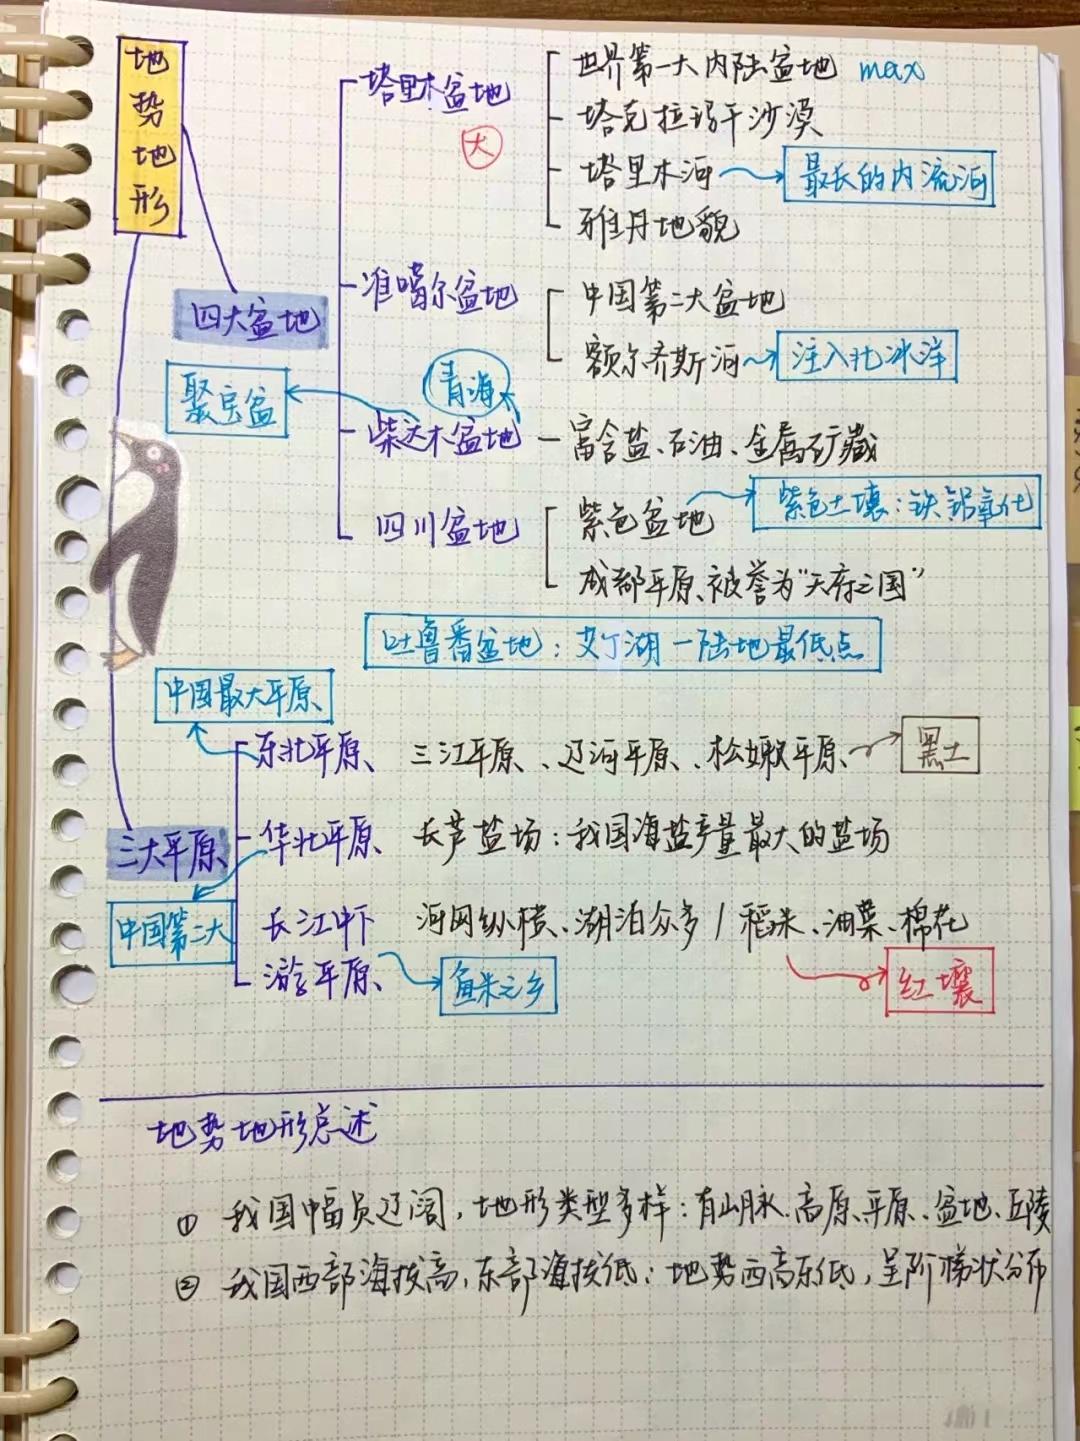 地势地形
四大盆地
塔里木盆地
大
世界第一大内陆盆地 max
塔克拉玛干沙漠
塔里木河 最长的内流河
雅丹地貌
准噶尔盆地
中国第二大盆地
额尔齐斯河 注入北冰洋
聚宝盆
青海
柴达木盆地 富含盐、石油、金属矿藏
四川盆地
紫色盆地 紫色土壤:铁铝氧化
成都平原、被誉为"天府之国"
吐鲁番盆地:艾丁湖一陆地最低点
中国最大平原
东北平原、三江平原、辽河平原、松嫩平原 黑土
三大平原
华北平原 长芦盐场:我国海盐产量最大的盐场
中国第二大
长江中下 河网纵横、湖泊众多/稻米、油菜、棉花
游平原 鱼米之乡 红壤
地势地形总述
① 我国幅员辽阔,地形类型多样:有山脉、高原、平原、盆地、丘陵
② 我国西部海拔高,东部海拔低;地势西高东低,呈阶梯状分布